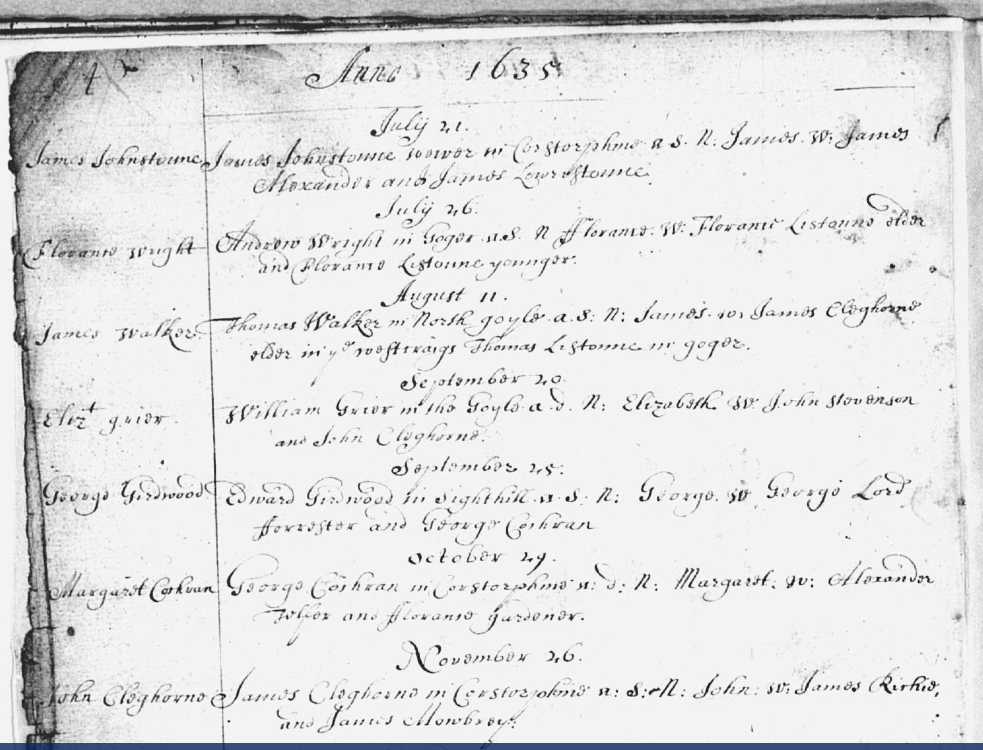 4
Anno 1635
July 21.
James Johnstoune James Johnstoune wewer in Corstorphine a S. N: James. W: James
Alexander and James Lowrestoune.
July 26.
Florance Wright Andrew Wright in Goger a.S. N fflorance: W: Florance Listoune elder
and Florance Listoune younger.
August 11.
James Walker Thomas Walker in North goyle a.S: N: James. W: James Cleghorne
elder in ye westcraigs Thomas Listoune in goger.
September 20.
Elizt grier. William Grier in the Goyle a.d. N: Elizabeth W. John Stevenson
and John Cleghorne.
September 25.
George Girdwood Edward Girdwood in Sighthill a.S. N: George. W George Lord
fforrester and George Cochran
October 29.
Margaret Cochran George Cochran in Corstorphine a: d: N: Margaret: W: Alexander
Telfer and fflorance gardener.
November 26.
John Cleghorne James Cleghorne in Corstorphine a: S: N: John: W: James Richie,
and James Mowbrey.